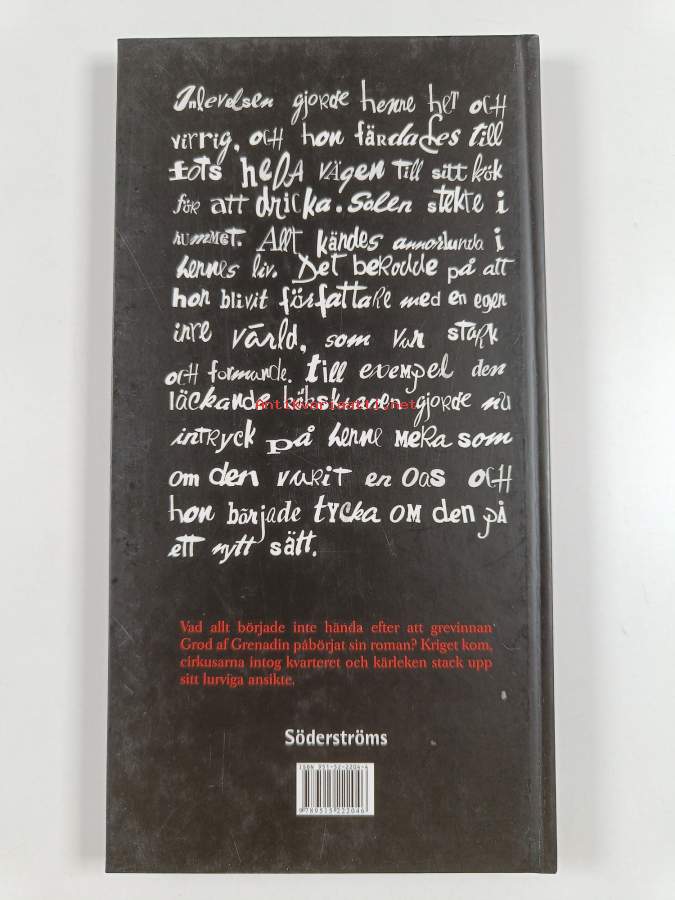 Inlevelsen gjorde henne het och
virrig, och hon färdades till
fots hela vägen till sitt kök
för att dricka. Solen stekte i
rummet. Allt kändes annorlunda i
hennes liv. Det berodde på att
hon blivit författare med en egen
inre värld, som var stark
och formande. till exempel den
läckande kökskranen gjorde nu
antikvariaatti.net
intryck på henne mera som
om den varit en oas och
hon började tycka om den på
ett nytt sätt.
Vad allt började inte hända efter att grevinnan
Grod af Grenadin påbörjat sin roman? Kriget kom,
cirkusarna intog kvarteret och kärleken stack upp
sitt lurviga ansikte.
Söderströms
ISBN 951-52-2204-4
9 789515 222046